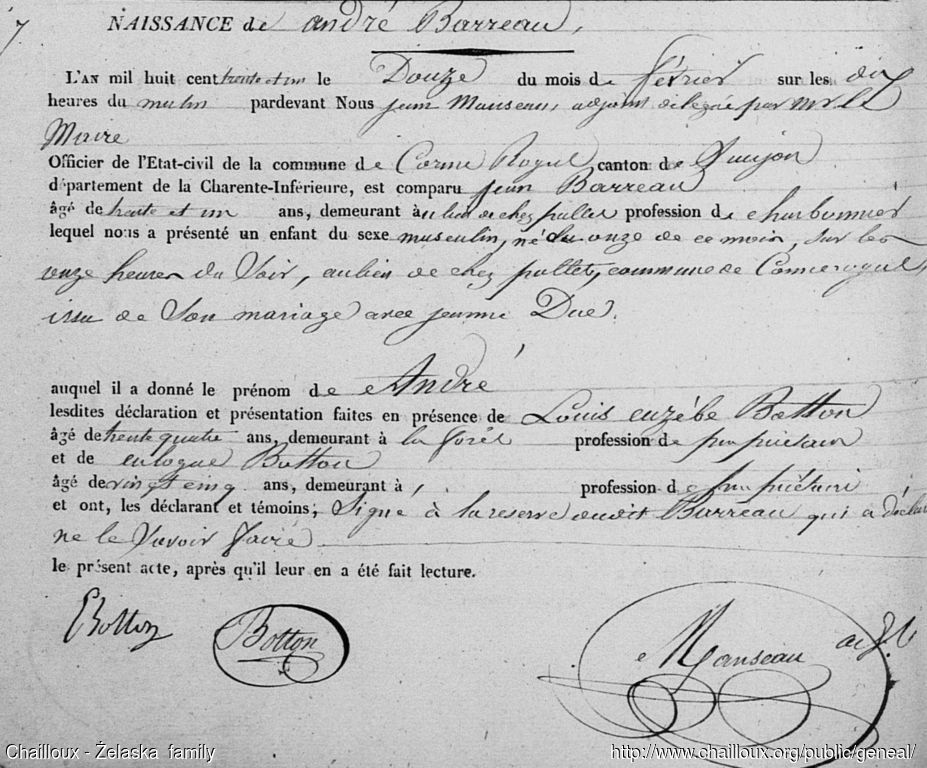 7
NAISSANCE de andré Barreau,
L'AN mil huit cent trente et un le Douze du mois de février sur les dix
heures du matin pardevant Nous jean Manseau, adjoint délégué par mr le
Maire
Officier de l'Etat-civil de la commune de Corme Royal canton de Saujon
département de la Charente-Inférieure, est comparu jean Barreau
âgé de trente et un ans, demeurant à au lieu de chez pallet profession de charbonnier
lequel nous a présenté un enfant du sexe masculin, né du onze de ce mois, sur les
onze heures du Soir, au lieu de chez pallet, commune de Corme royal,
issu de Son mariage avec jeanne Due.
auquel il a donné le prénom de André
lesdites déclaration et présentation faites en présence de Louis euzébe Botton
âgé de trente quatre ans, demeurant à la forêt profession de propriétaire
et de eulogue Botton
âgé de vingt cinq ans, demeurant à profession de propriétaire
et ont, les déclarant et témoins, Signé à la reserve dudit Barreau qui a déclaré
ne le Savoir faire
le présent acte, après qu'il leur en a été fait lecture.
Botton Botton Manseau adjt
Chailloux - Želaska family http://www.chailloux.org/public/geneal/